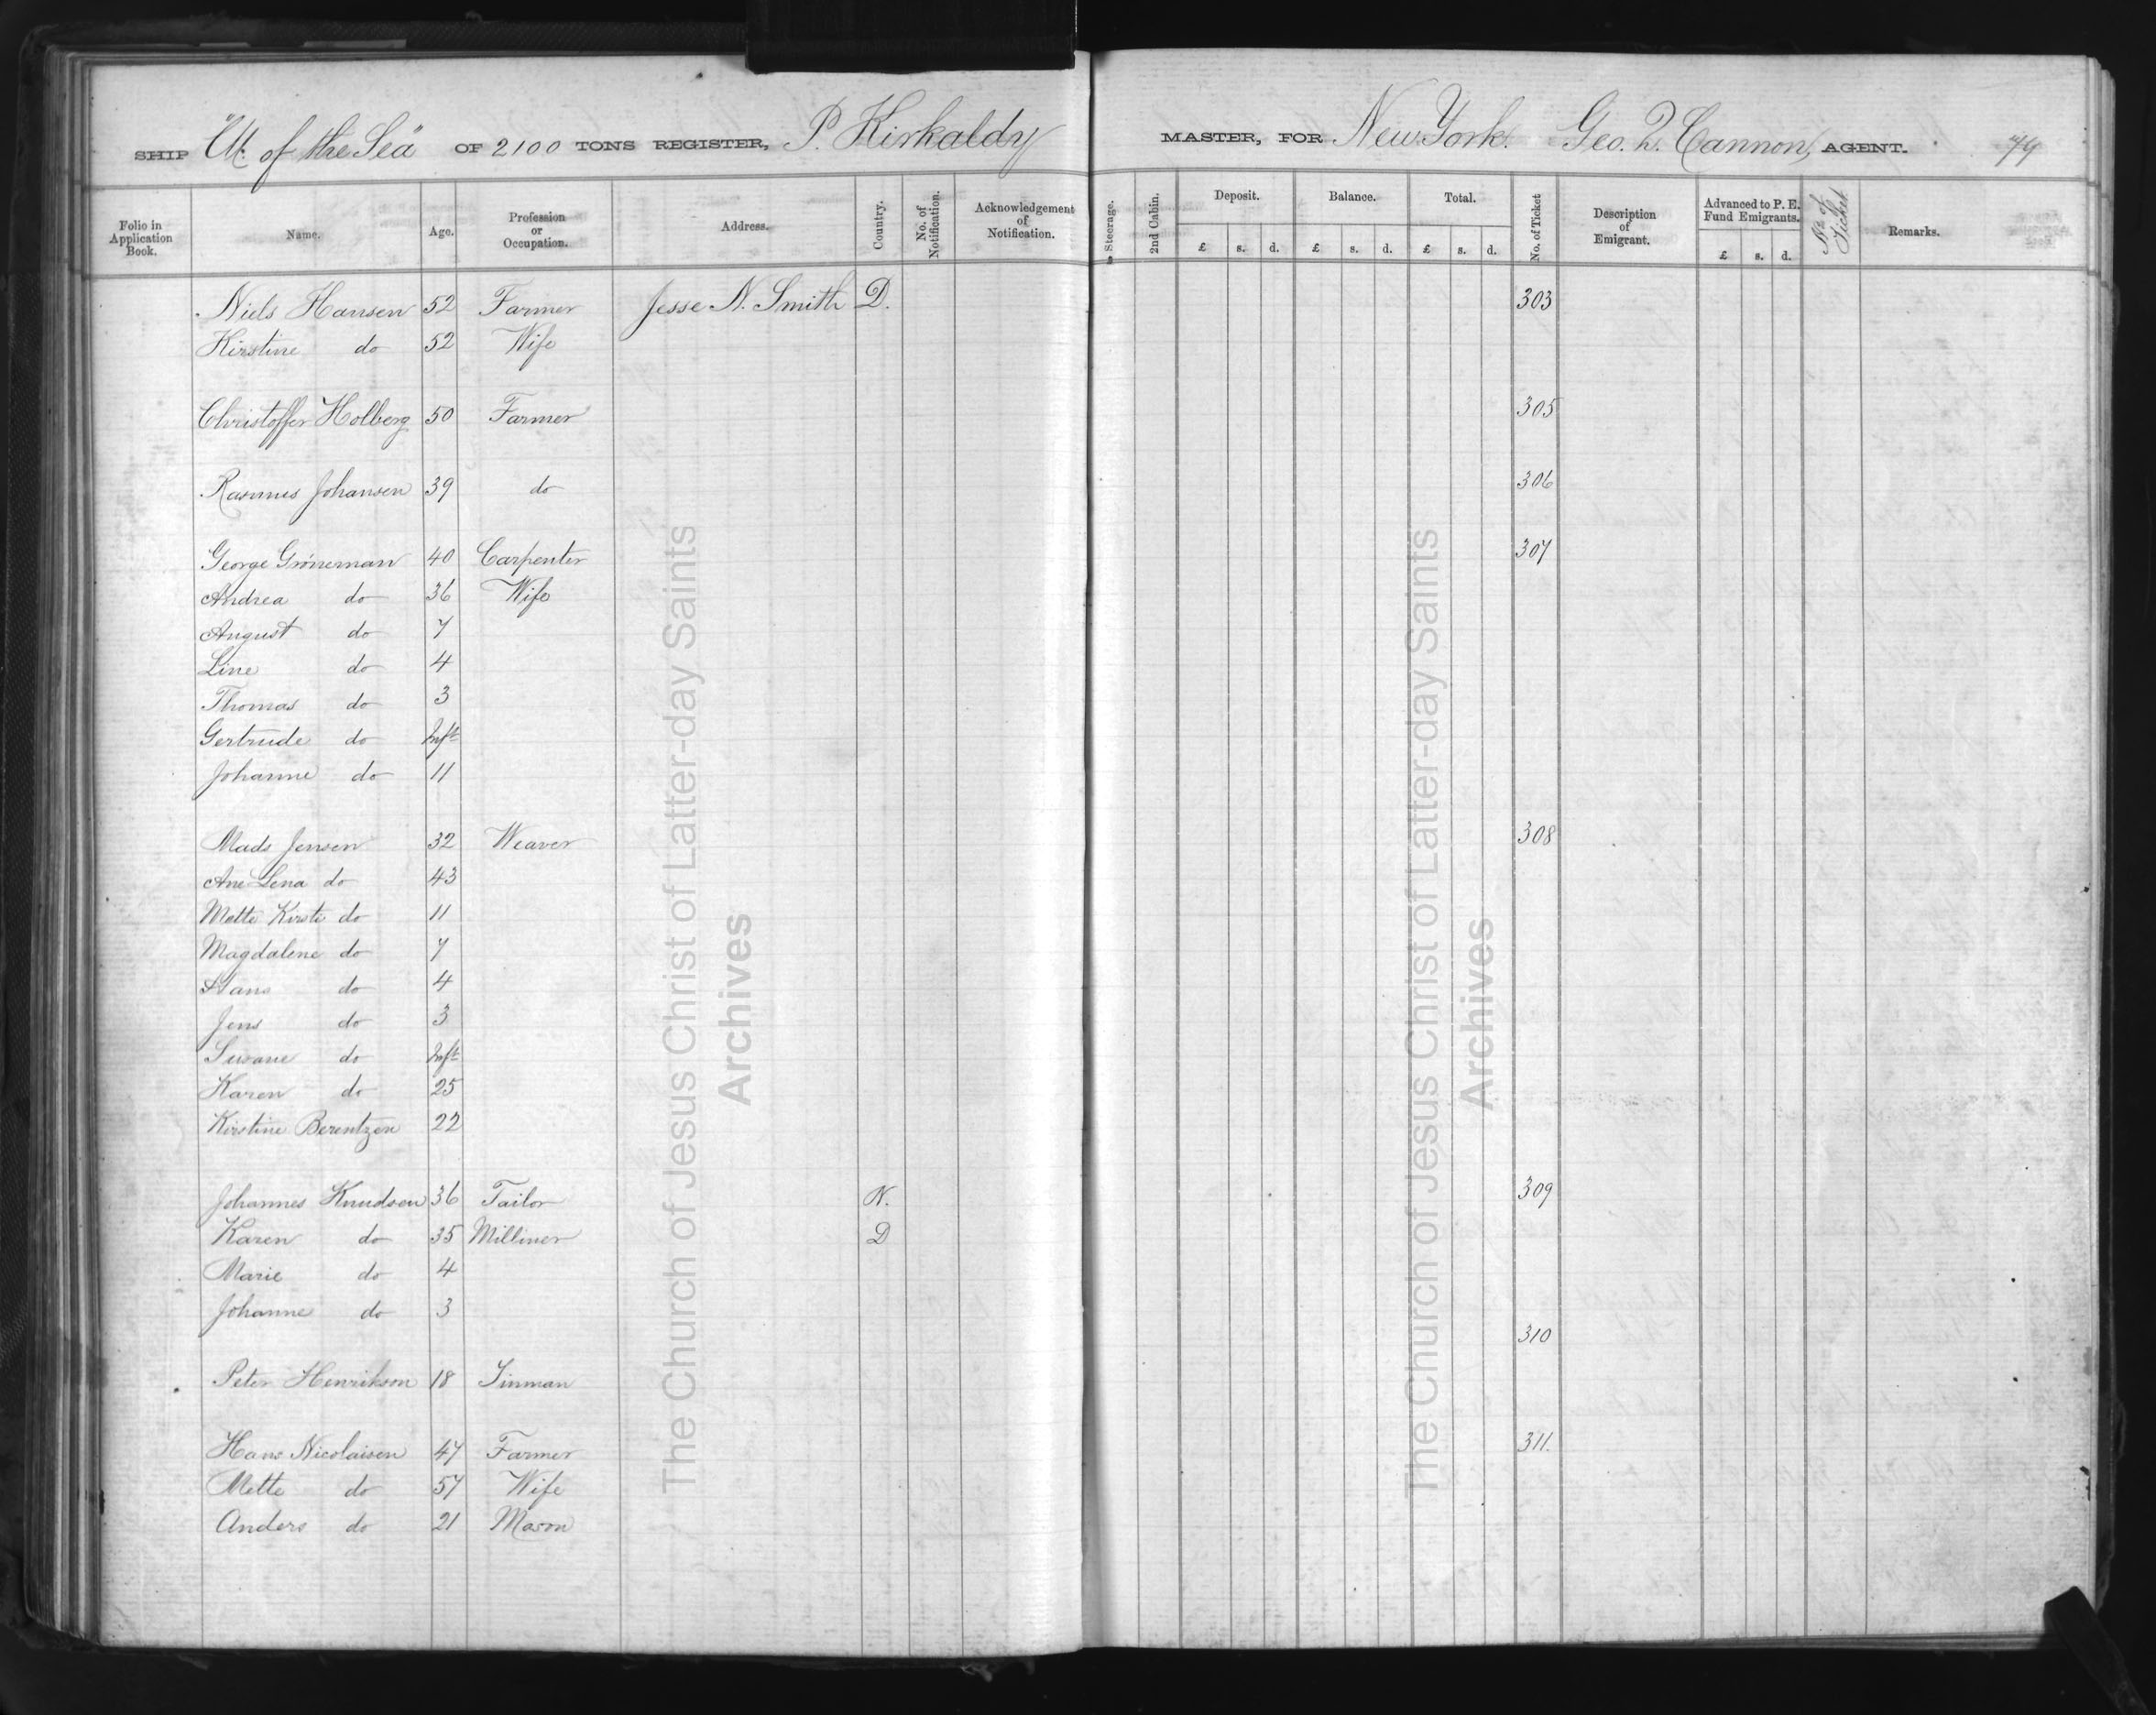 SHIP "W. of the Sea" OF 2100 TONS REGISTER, P. Kirkaldy MASTER, FOR New York. Geo. Q. Cannon, AGENT. 79
Folio in Application Book. Name. Age. Profession or Occupation. Address. Country. No. of Notification. Acknowledgement of Notification. Steerage. 2nd Cabin. Deposit. Balance. Total. No. of Ticket Description of Emigrant. Advanced to P. E. Fund Emigrants. No of Ticket Remarks.
£ s. d. £ s. d. £ s. d. £ s. d.
Niels Hansen 52 Farmer Jesse N. Smith D. 303
Kirstine do 52 Wife
Christoffer Holberg 50 Farmer 305
Rasmus Johansen 39 do 306
George Gröneman 40 Carpenter 307
Andrea do 36 Wife
August do 7
Line do 4
Thomas do 3
Gertrude do Inft
Johanne do 11
Mads Jensen 32 Weaver 308
Ane Lena do 43
Mette Kirste do 11
Magdalene do 7
Hans do 4
Jens do 3
Susane do Inft
Karen do 25
Kirstine Berentzen 22
Johannes Knudsen 36 Tailor N. 309
Karen do 35 Milliner D
Marie do 4
Johanne do 3
310
Peter Henrikson 18 Tinman
Hans Nicolaisen 47 Farmer 311.
Mette do 57 Wife
Anders do 21 Mason
The Church of Jesus Christ of Latter-day Saints
Archives
The Church of Jesus Christ of Latter-day Saints
Archives